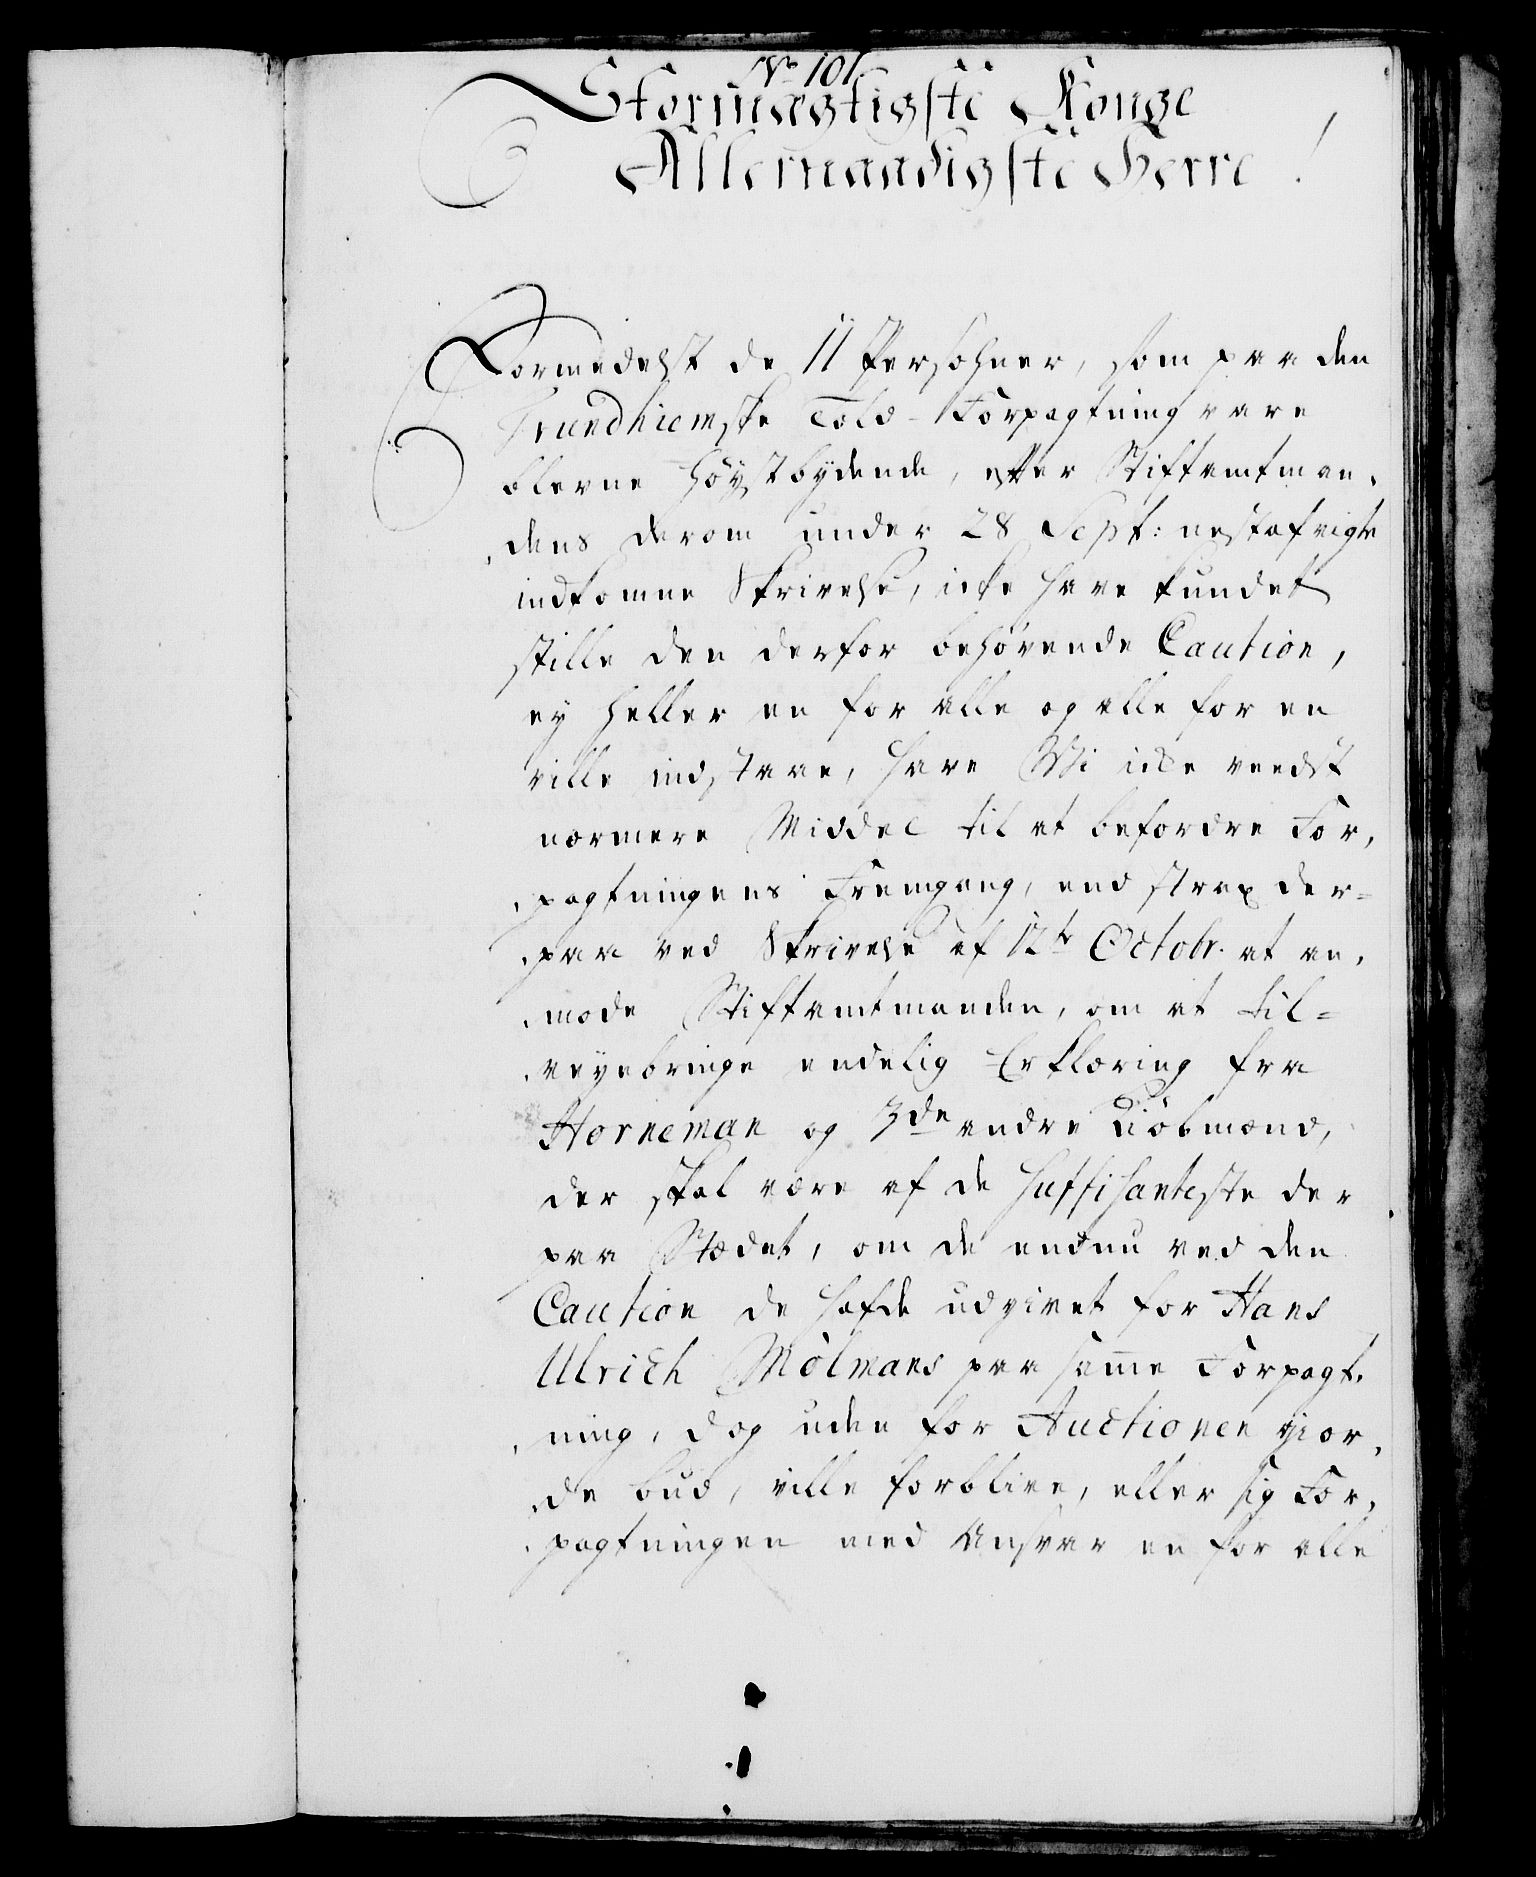 No 101
Stormægtigste Konge
Allernaadigste Herre!
Formedelst de 11 Persohner, som paa den
Trundhiemske Told-Forpagtning vare
blevne høystbydende, efter Stiftamtman,
,dens derom under 28 Sept: nestafvigte
indkomne Skrivelse, icke have kundet
stille den derfor behørende Caution,
ey heller en for alle og alle for en
ville indstaae, have Wi icke veedst
nærmere Middel til at befordre For,
,pagtningens Fremgang, end strax der=
,paa ved Skrivelse af 12te Octobr. at an,
,mode Stiftamtmanden, om at til=
,veyebringe endelig Erklæring fra
Horneman og 3de andre Kiøbmænd,
der skal være af de suffisanteste der
paa Stædet, om de endnu ved den
Caution de hafde udgivet for Hans
Ulrich Mølmans paa samme Forpagt,
,ning, dog uden for Auctionen gior,
,de bud, ville forblive, eller sig For,
,pagtningen med Ansvar en for alle